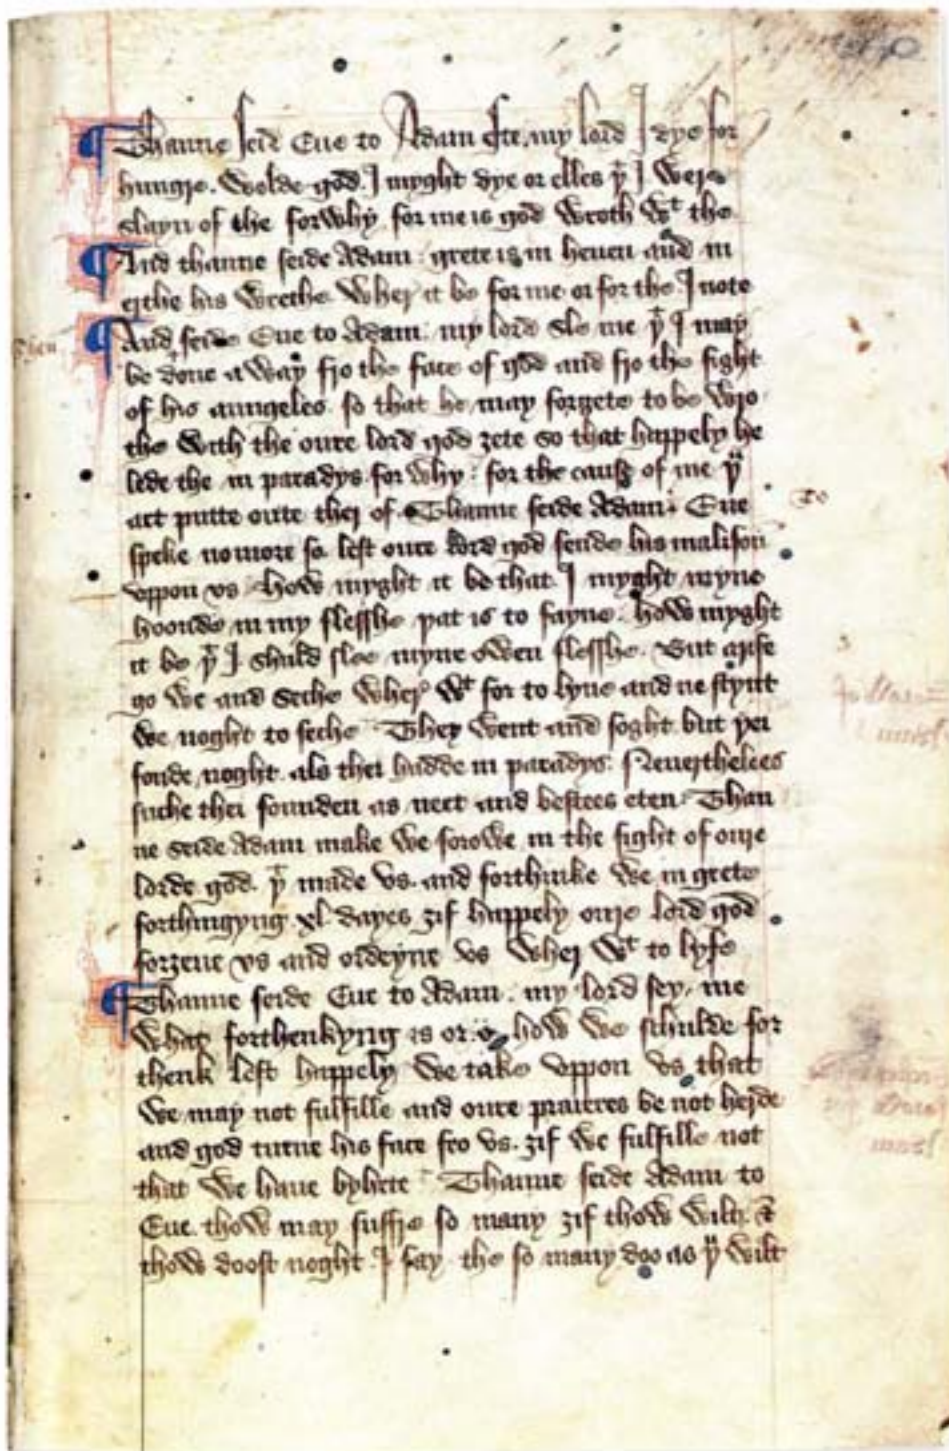 Thanne seid Eue to Adam my lord I dye for
hungre. Wolde god I myght dye or elles þͭ I were
slayn of the forwhy for me is god wroth wͭ the
And thanne seide Adam grete is in heuen and in
erthe his wrethe Wher it be for me or for the I note
And seide Eue to Adam my lord sle me þͭ I may
be done a way fro the face of god and fro the sight
of his aungeles so that he may forȝete to be wro
the with the oure lord god ȝete so that happely he
lede the in paradys for why for the cause of me þu
art putte oute ther of Thanne seide Adam Eue
speke nomore so lest oure lord god sende his malison
vppon vs How myght it be that I myght myne
hoonde in my flesshe þat is to sayne how myght
it be þͭ I shuld slee myne owen flesshe But arise
go we and seche wher wͭ for to lyue and ne stynt
we noght to seche They went and soght but þei
fonde noght als thei hadde in paradys Neuerthelees
suche thei founden as neet and bestees eten Than
ne seide Adam make we sorowe in the sight of oure
lorde god þͭ made vs and forthinke we in grete
forthingyng xl dayes ȝif happely oure lord god
forȝeue vs and ordeyne vs wher wͭ to lyfe
Thanne seide Eue to Adam my lord sey me
what forthenkyng is or how we schulde for
thenk lest happely we take vppon vs that
we may not fulfille and oure praieres be not herde
and god turne his face fro vs ȝif we fulfille not
that we haue byhete Thanne seide Adam to
Eue thow may suffre so many ȝif thow wilt
thow doost noght I say the so many doo as þu wilt